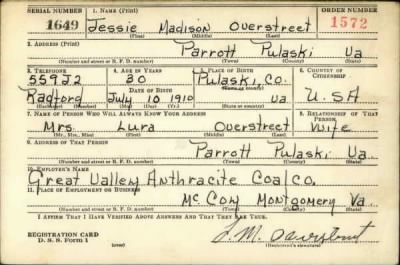 SERIAL NUMBER 1. NAME (Print) ORDER NUMBER
1649 Jessie Madison Overstreet 1572
(First) (Middle) (Last)
2. ADDRESS (Print)
Parrott Pulaski Va
(Number and street or R. F. D. number) (Town) (County) (State)
3. TELEPHONE 4. AGE IN YEARS 5. PLACE OF BIRTH 6. COUNTRY OF CITIZENSHIP
55922 30 Pulaski, Co.
Radford DATE OF BIRTH (Town or county)
July 10 1910 Va U.S.A
(Exchange) (Number) (Mo.) (Day) (Yr.) (State or country)
7. NAME OF PERSON WHO WILL ALWAYS KNOW YOUR ADDRESS 8. RELATIONSHIP OF THAT PERSON
Mrs. Lura Overstreet wife
(Mr., Mrs., Miss) (First) (Middle) (Last)
9. ADDRESS OF THAT PERSON
Parrott Pulaski Va.
(Number and street or R. F. D. number) (Town) (County) (State)
10. EMPLOYER'S NAME
Great Valley Anthracite Coal Co.
11. PLACE OF EMPLOYMENT OR BUSINESS
Mc Coy Montgomery Va.
(Number and street or R. F. D. number) (Town) (County) (State)
I AFFIRM THAT I HAVE VERIFIED ABOVE ANSWERS AND THAT THEY ARE TRUE.
REGISTRATION CARD
D. S. S. Form 1 (Registrant's signature)